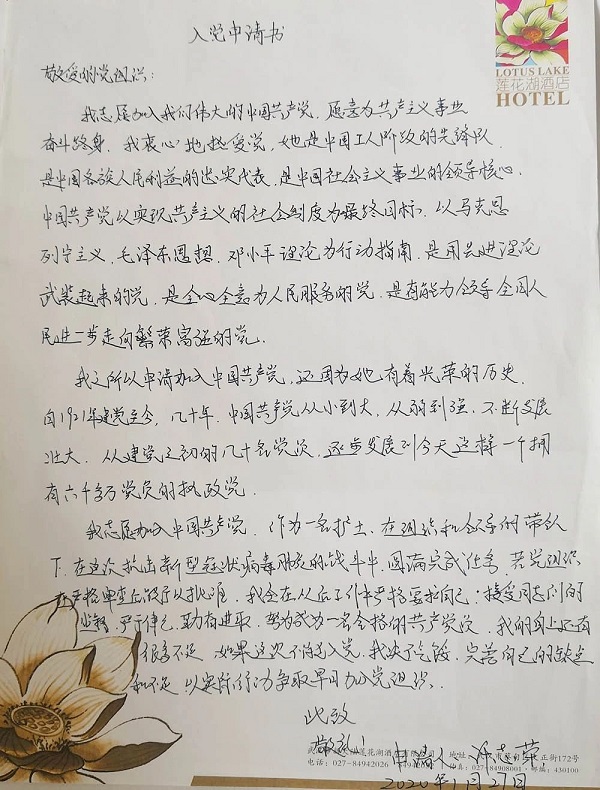 LOTUS LAKE
莲花湖酒店
HOTEL
入党申请书
敬爱的党组织：
我志愿加入我们伟大的中国共产党，愿意为共产主义事业
奋斗终身。我衷心地热爱党，她是中国工人阶级的先锋队，
是中国各族人民利益的忠实代表，是中国社会主义事业的领导核心。
中国共产党以实现共产主义的社会制度为最终目标，以马克思
列宁主义、毛泽东思想、邓小平理论为行动指南，是用先进理论
武装起来的党，是全心全意为人民服务的党，是有能力领导全国人
民进一步走向繁荣富强的党。
我之所以申请加入中国共产党，还因为她有着光荣的历史。
自1921年建党至今，几十年，中国共产党从小到大，从弱到强，不断发展
壮大。从建党之初的几十名党员，逐步发展到今天这样一个拥
有六千多万党员的执政党。
我志愿加入中国共产党。作为一名护士，在组织和领导的带队
下，在这次抗击新型冠状病毒肺炎的战斗中，圆满完成任务，若党组织
在严格审查后给予以批准，我会在以后工作中严格要求自己，接受同志们的
监督，严于律己，勤奋进取，努力成为一名合格的共产党员。我的身上还有
很多不足，如果这次不能入党，我决不气馁，完善自己的缺点
和不足，以实际行动争取早日加入党组织。
此致
敬礼！
申请人：
2020年1月27日
莲花湖酒店有限公司 地址：
正街172号
电话：027-84942026
传真：027-84908001 邮编：430100